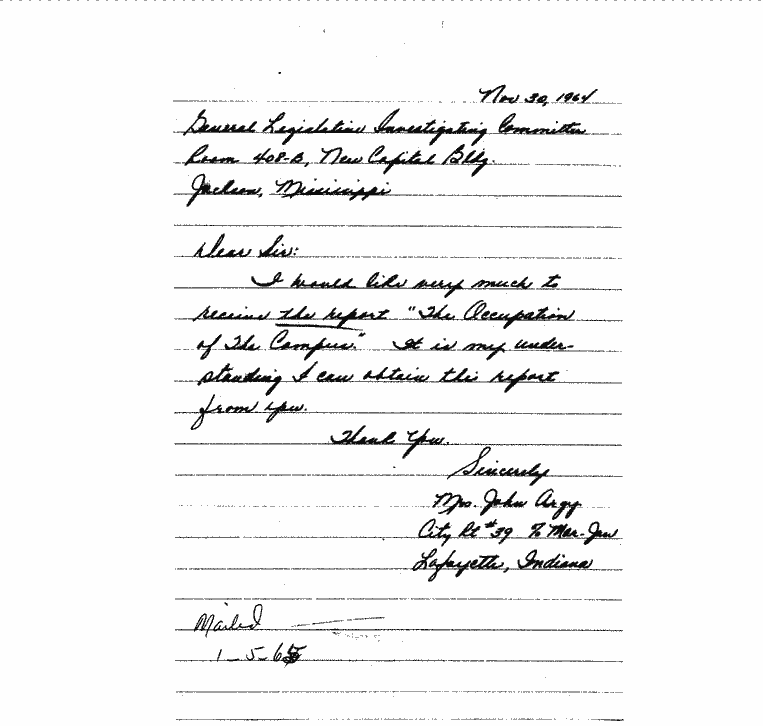 Nov 30, 1964
General Legislative Investigating Committee
Room 408-B, New Capital Bldg.
Jackson, Mississippi
Dear Sir:
I would like very much to
receive the report "The Occupation
of The Campus." It is my under-
standing I can obtain this report
from you.
Thank You.
Sincerely
Mrs. John Argy
City Rt #39 % Mar-Jan
Lafayette, Indiana
Mailed
1-5-65